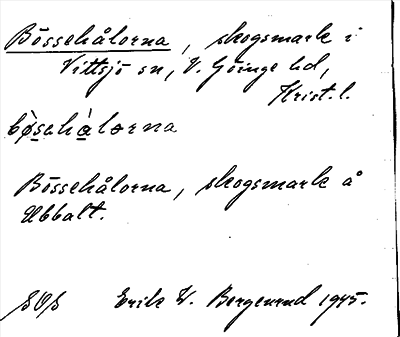 Bössehålorna, skogsmark i
Vittsjö sn, V. Göinge hd,
Krist. l.
bø̀sehàlorna
Bössehålorna, skogsmark å
Ubbalt.
SOS Erik W. Bergenrud 1945.